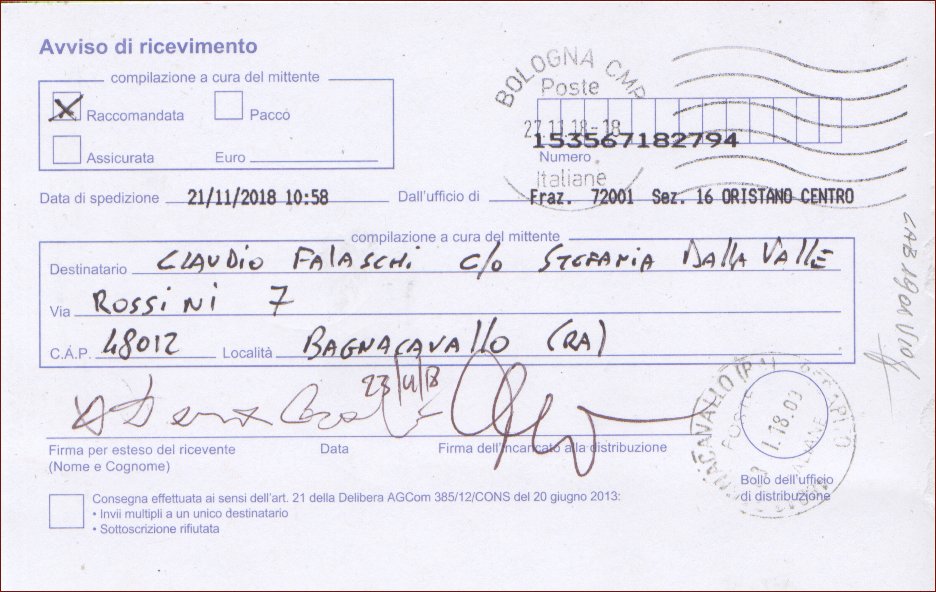 Avviso di ricevimento
compilazione a cura del mittente
X Raccomandata Pacco
Assicurata Euro
BOLOGNA CMP
Poste
27 11 18-18
153567182794
Numero
Italiane
Data di spedizione 21/11/2018 10:58 Dall'ufficio di Fraz. 72001 Sez. 16 ORISTANO CENTRO
compilazione a cura del mittente
Destinatario CLAUDIO FALASCHI C/O STEFANIA DALLA VALLE
Via ROSSINI 7
C.A.P. 48012 Località BAGNACAVALLO (RA)
Firma per esteso del ricevente Data Firma dell'incaricato alla distribuzione
(Nome e Cognome)
Bollo dell'ufficio
di distribuzione
Consegna effettuata ai sensi dell'art. 21 della Delibera AGCom 385/12/CONS del 20 giugno 2013:
• Invii multipli a un unico destinatario
• Sottoscrizione rifiutata